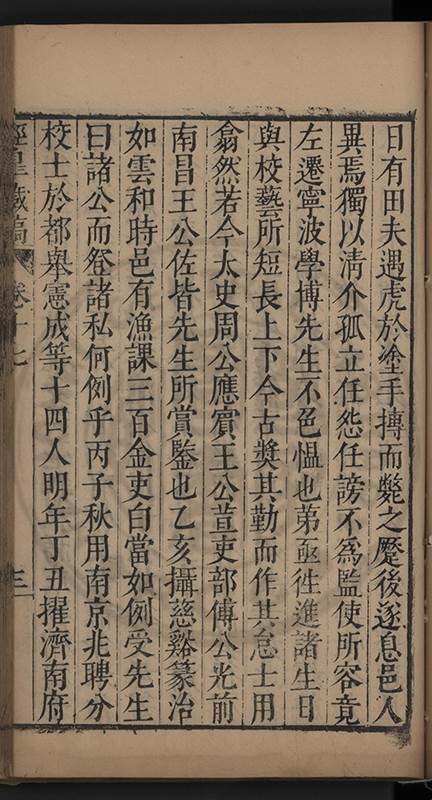 日有田夫遇虎於塗手搏而斃之魘後遂息邑人
異焉獨以清介孤立任怨任謗不爲監使所容竟
左遷寧波學博先生不色慍也第亟徃進諸生日
與校藝所短長上下今古奬其勤而作其怠士用
翕然若今太史周公應賔王公萱吏部傅公光前
南昌王公佐皆先生所賞鑒也乙亥攝慈谿篆治
如雲和時邑有漁課三百金吏白當如例受先生
曰諸公而簦諸私何例乎丙子秋用南京兆聘分
校士於都舉憲成等十四人明年丁丑擢濟南府
涇臯藏稿
卷十七
三